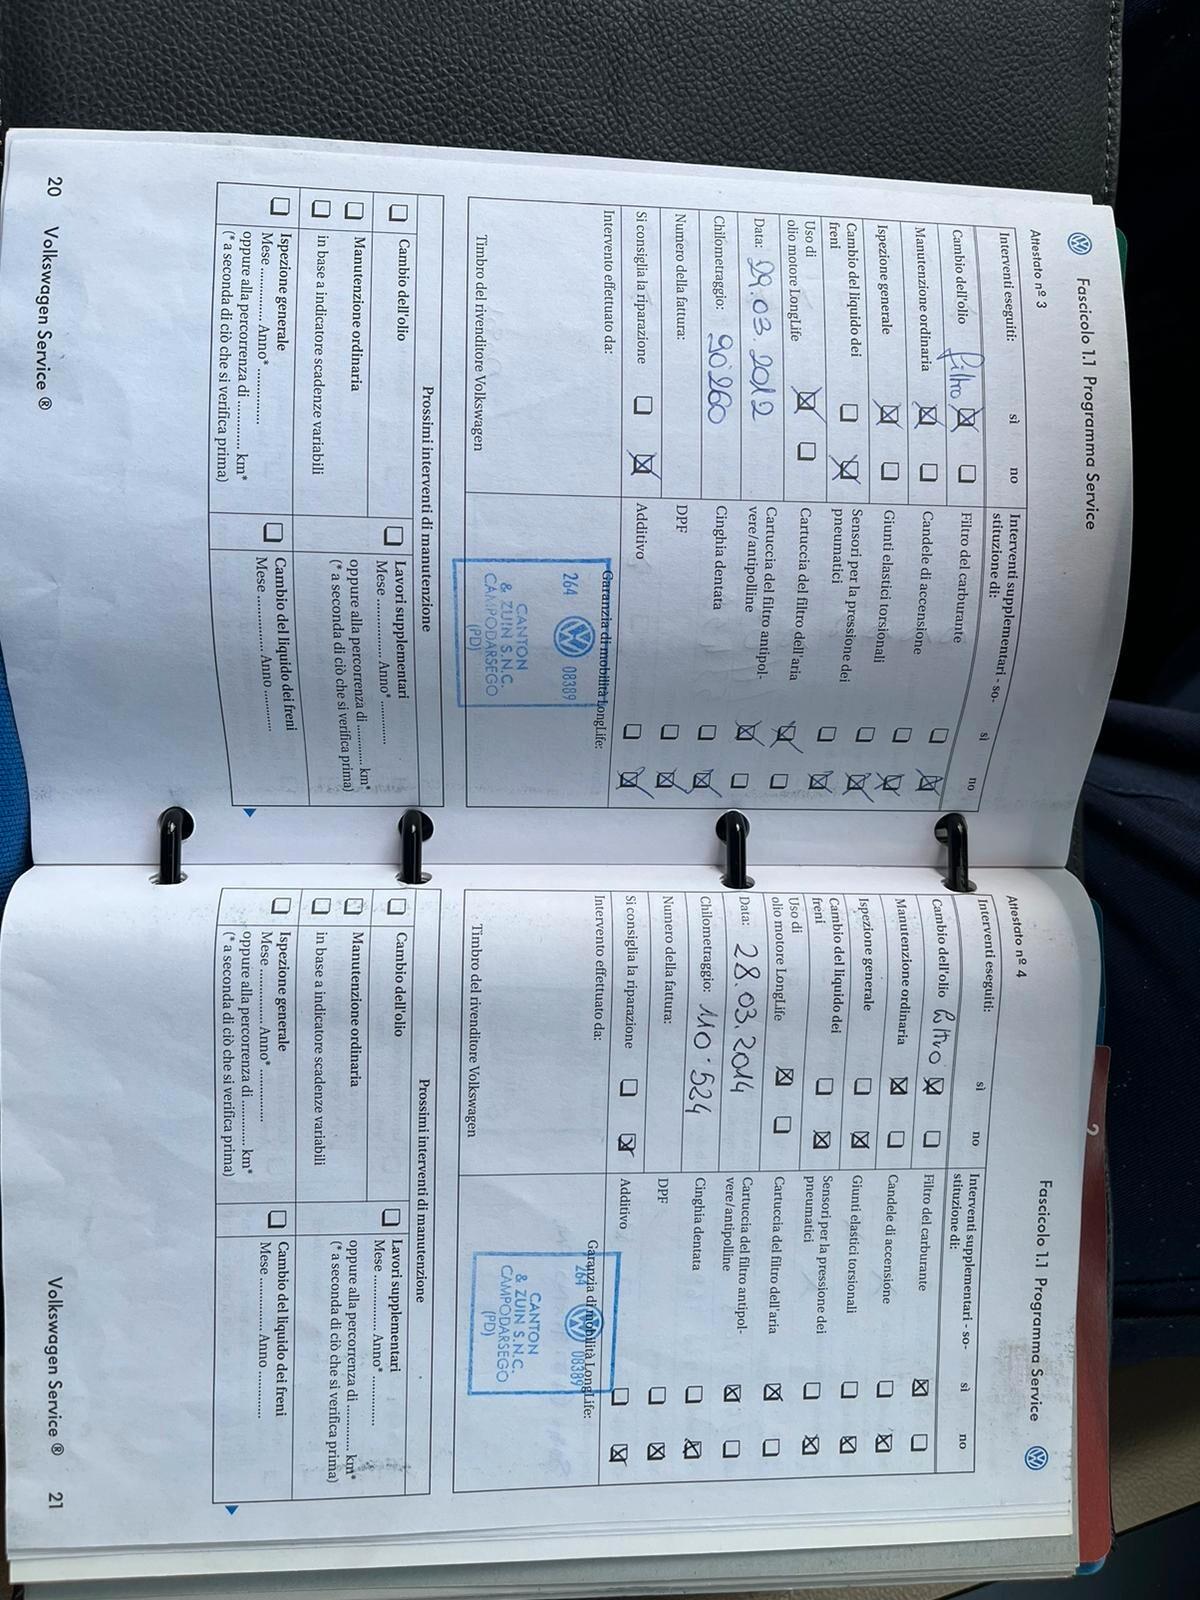 Fascicolo 1.1 Programma Service
Attestato nº 3
Interventi eseguiti: sì no
Cambio dell'olio filtro ☒ ☐
Manutenzione ordinaria ☒ ☐
Ispezione generale ☒ ☐
Cambio del liquido dei
freni ☐ ☒
Uso di
olio motore LongLife ☒ ☐
Data: 29.03.2012
Chilometraggio: 90'260
Numero della fattura:
Si consiglia la riparazione ☐ ☒
Intervento effettuato da:
Timbro del rivenditore Volkswagen
Interventi supplementari - so-
stituzione di: sì no
Filtro del carburante ☐ ☒
Candele di accensione ☐ ☒
Giunti elastici torsionali ☐ ☒
Sensori per la pressione dei
pneumatici ☐ ☒
Cartuccia del filtro dell'aria ☒ ☐
Cartuccia del filtro antipol-
vere/antipolline ☒ ☐
Cinghia dentata ☐ ☒
DPF ☐ ☒
Additivo ☐ ☒
Garanzia di mobilità LongLife:
264 08389
CANTON
& ZUIN S.N.C.
CAMPODARSEGO
(PD)
Prossimi interventi di manutenzione
☐ Cambio dell'olio
☐ Manutenzione ordinaria
☐ in base a indicatore scadenze variabili
☐ Ispezione generale
Mese ............ Anno* ............
oppure alla percorrenza di ............ km*
(* a seconda di ciò che si verifica prima)
☐ Lavori supplementari
Mese ............ Anno* ............
oppure alla percorrenza di ............ km*
(* a seconda di ciò che si verifica prima)
☐ Cambio del liquido dei freni
Mese ............ Anno ............
20 Volkswagen Service ®
Fascicolo 1.1 Programma Service
Attestato nº 4
Interventi eseguiti: sì no
Cambio dell'olio filtro ☒ ☐
Manutenzione ordinaria ☒ ☐
Ispezione generale ☐ ☒
Cambio del liquido dei
freni ☐ ☒
Uso di
olio motore LongLife ☒ ☐
Data: 28.03.2014
Chilometraggio: 110.524
Numero della fattura:
Si consiglia la riparazione ☐ ☒
Intervento effettuato da:
Timbro del rivenditore Volkswagen
Interventi supplementari - so-
stituzione di: sì no
Filtro del carburante ☒ ☐
Candele di accensione ☐ ☒
Giunti elastici torsionali ☐ ☒
Sensori per la pressione dei
pneumatici ☐ ☒
Cartuccia del filtro dell'aria ☒ ☐
Cartuccia del filtro antipol-
vere/antipolline ☒ ☐
Cinghia dentata ☐ ☒
DPF ☐ ☒
Additivo ☐ ☒
Garanzia di mobilità LongLife:
264 08389
CANTON
& ZUIN S.N.C.
CAMPODARSEGO
(PD)
Prossimi interventi di manutenzione
☐ Cambio dell'olio
☐ Manutenzione ordinaria
☐ in base a indicatore scadenze variabili
☐ Ispezione generale
Mese ............ Anno* ............
oppure alla percorrenza di ............ km*
(* a seconda di ciò che si verifica prima)
☐ Lavori supplementari
Mese ............ Anno* ............
oppure alla percorrenza di ............ km*
(* a seconda di ciò che si verifica prima)
☐ Cambio del liquido dei freni
Mese ............ Anno ............
Volkswagen Service ® 21
2